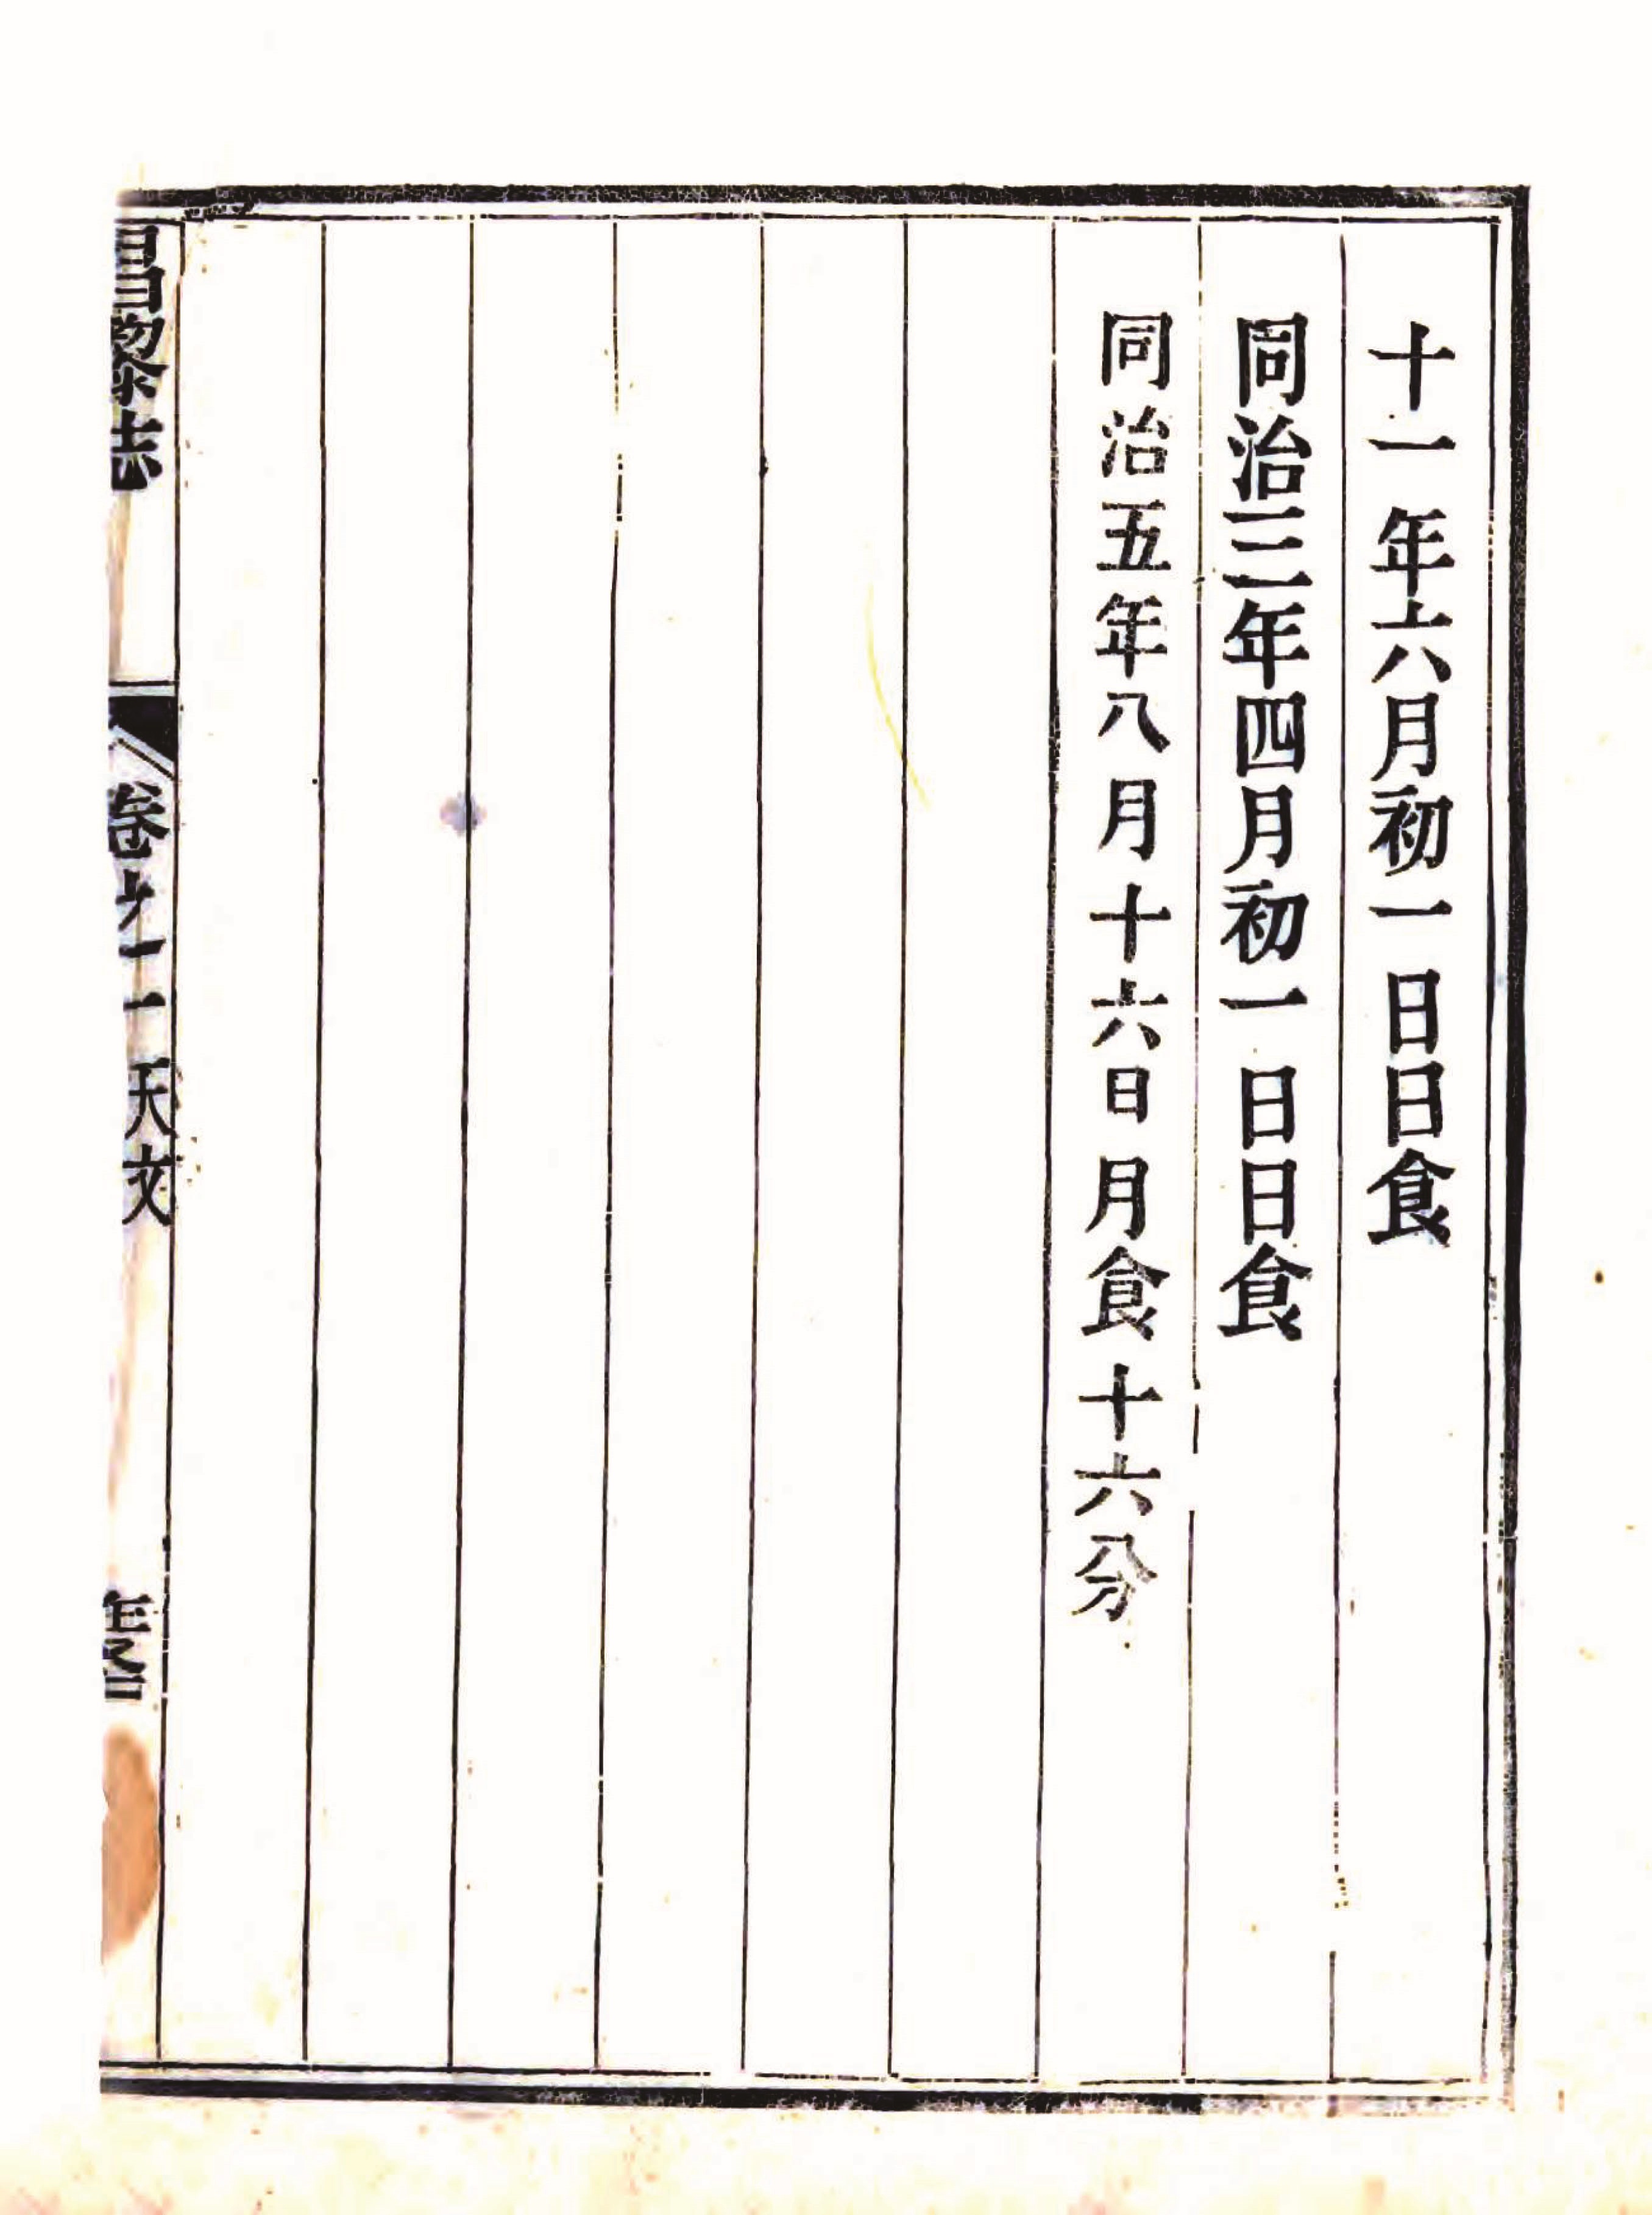 十一年六月初一日日食
同治三年四月初一日日食
同治五年八月十六日月食十六分
昌黎志
卷之一天文